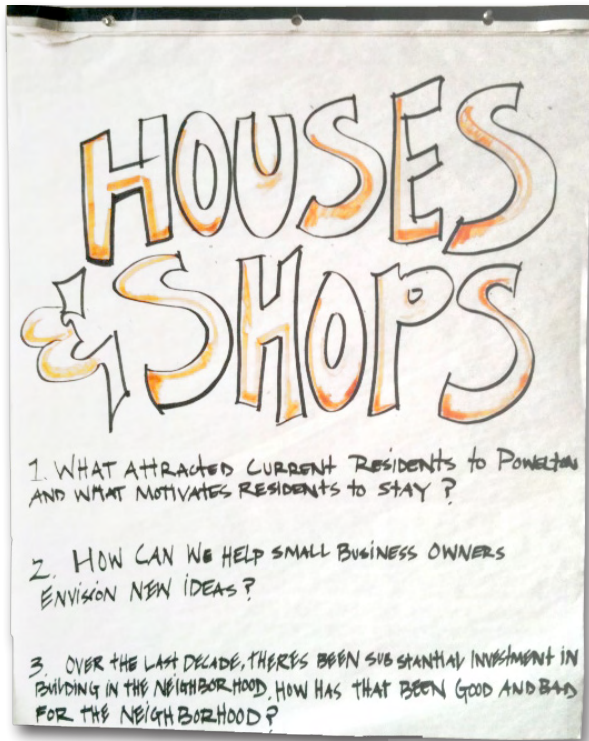 HOUSES
& SHOPS
1. WHAT ATTRACTED CURRENT RESIDENTS to POWELTON
AND WHAT MOTIVATES RESIDENTS to STAY ?
2. HOW CAN WE HELP SMALL BUSINESS OWNERS
ENVISION NEW IDEAS ?
3. OVER THE LAST DECADE, THERES BEEN SUBSTANTIAL INVESTMENT IN
BUILDING IN THE NEIGHBORHOOD. HOW HAS THAT BEEN GOOD AND BAD
FOR THE NEIGHBORHOOD ?